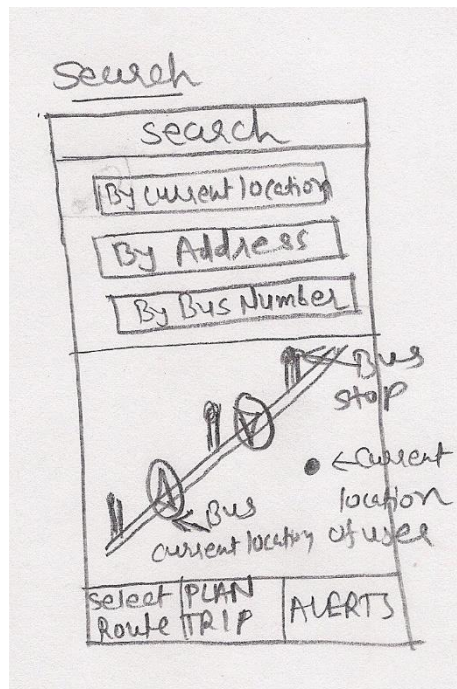 Search
search
By current location
By Address
By Bus Number
Bus
stop
current
location
of user
Bus
current location
Select
Route
PLAN
TRIP
ALERTS